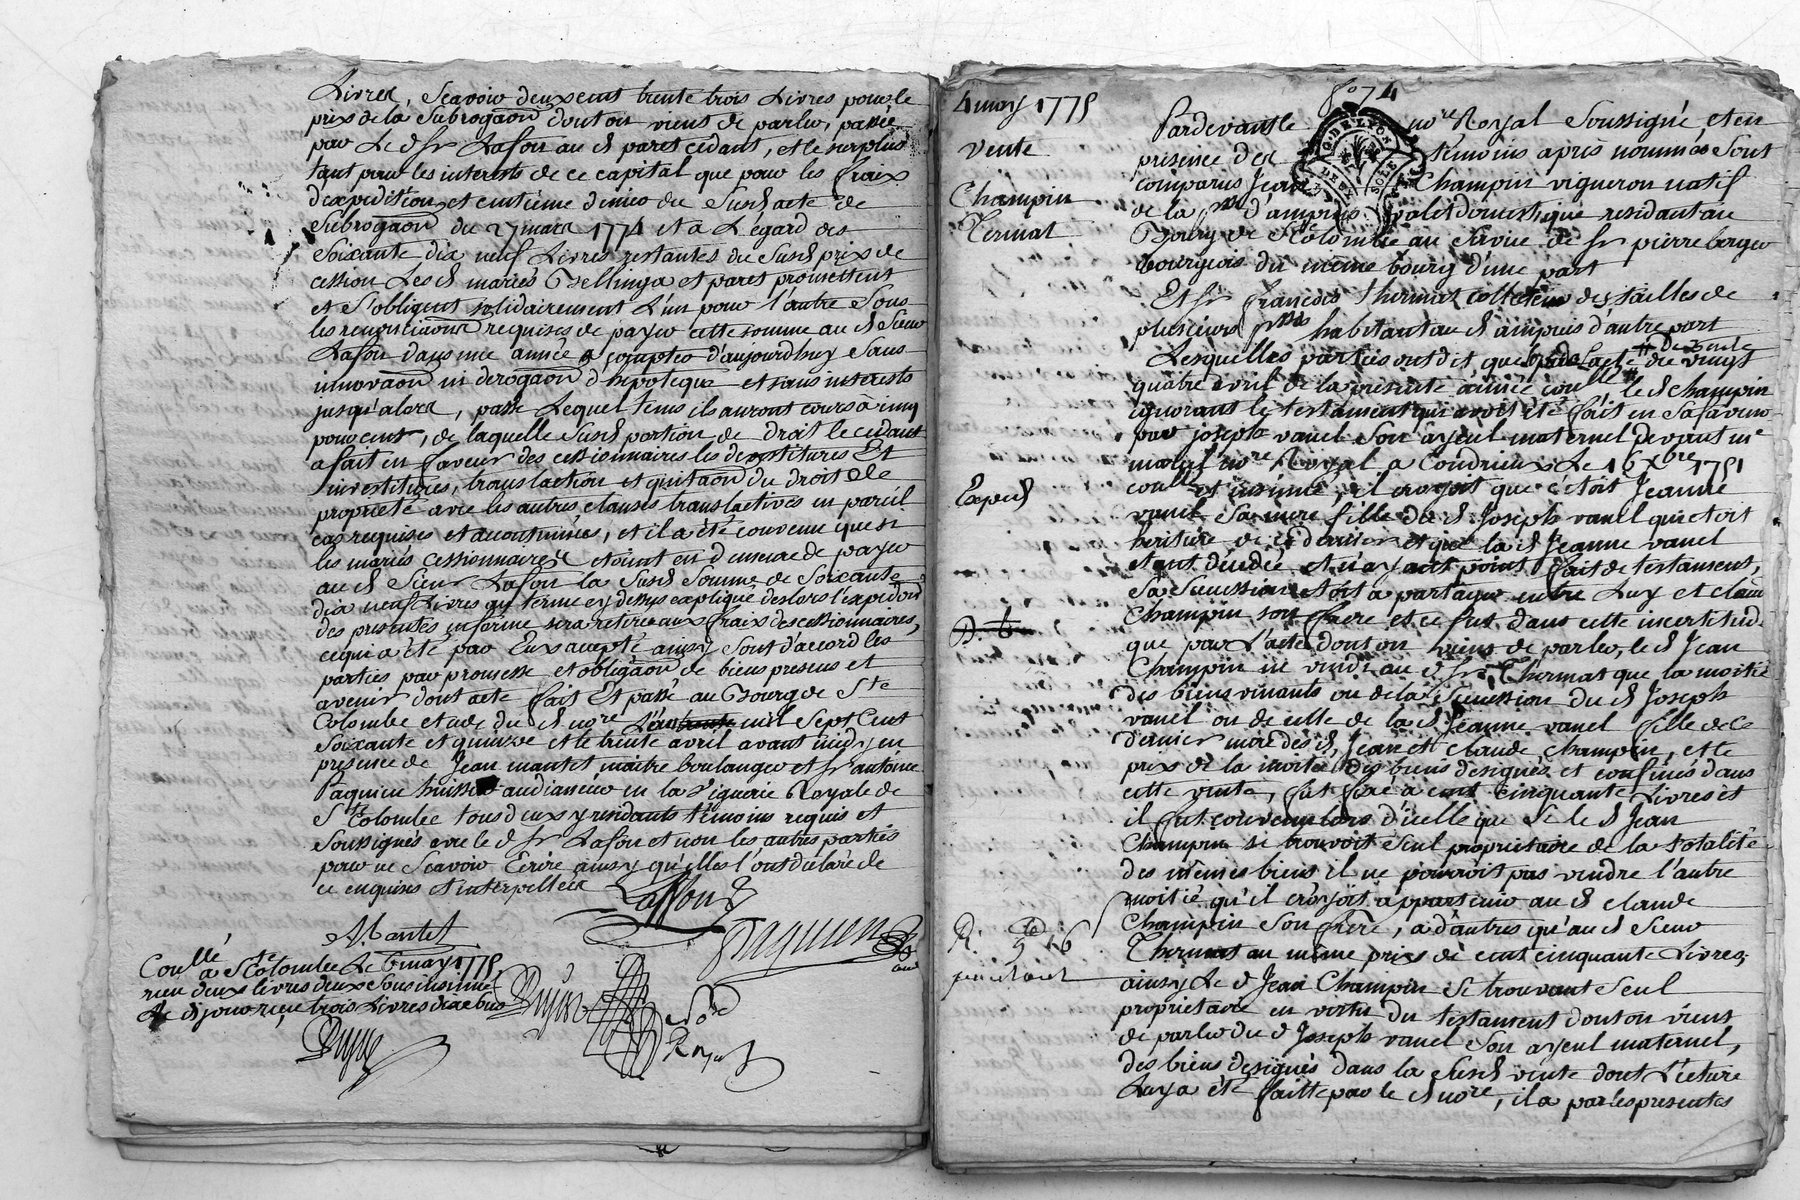 Livres, Scavoir deux cent trente trois Livres pour le
prix de la Subrogaôn dont on vient de parler, passée
par Le d. Sr Lafon au d. paret cédant, et le surplus
tant pour les interets de ce capital que pour les fraix
d'expedition et centième denier du Susd. acte de
Subrogaôn du 27 mars 1774 et a L'égard des
Soixante dix neuf Livres restantes du Susd. prix de
cession Les d. mariés Bellingа et paret promettent
et S'obligent solidairement L'un pour l'autre Sous
les renonciaôns requises de payer cette somme au d. Sieur
Lafon dans une année a compter d'aujourdhuy Sans
innovaôn ni derogaôn d'hipoteque et sans interets
jusqu'alors, passé Lequel tems ils auront cours à cinq
pour cent, de laquelle Susd. portion de droit le cédant
a fait en faveur des cessionnaires les devestitures Et
investitures, translaction et quitaôn du droit de
propriété avec les autres clauses translactives en pareil
cas requises et accoutumées, et il a été convenu que si
les mariés cessionnaires etoient en demeure de payer
au d. Sieur Lafon la Susd. Somme de Soixante
dix neuf Livres au terme cy dessus expliqué deslors l'expedôn
des presentes en forme sera retirée aux fraix des cessionnaires,
ce qui a été par Eux accepté ainsy Sont d'accord les
parties par promesse et obligaôn de biens presens et
avenir dont acte fait Et passé au Bourg de Ste
Colombe etude du d. nore L'an mil Sept Cent
Soixante et quinze et le trente avril avant midy en
presence de Jean mantet maitre boulanger et Sr antoine
Paquien huissier audiancier en la Viguerie Royale de
Ste Colombe tous deux y residants témoins requis et
Soussignés avec le d. Sr Lafon et non les autres parties
pour ne Scavoir Ecrire ainsy qu'elles l'ont déclaré de
ce enquises et interpellées
Laffon
Mantet
Paquien
Conllé
a Ste Colombe Le 6 may 1775
reçu deux livres deux Sous
Le d. jour reçu trois Livres
Nore
Royal
fo 74
4 may 1775
Vente
Champin
Thermat
Pardevant le nore Royal Soussigné, et en
presence des témoins après nommés Sont
comparus Jean Champin vigneron natif
de la psse d'ampuis valet domestique residant au
Bourg de Ste Colombe au Service de Sr pierre berger
bourgeois du même bourg d'une part
Et Sr françois thermat collecteur des tailles de
plusieurs psses habitant au d. ampuis d'autre part
Lesquelles parties ont dit que par l'acte # du vingt
# de vente
quatre avril de la presente année conllé # le d. champin
ignorant le testament qui avoit été fait en Sa faveur
par joseph vanel Son ayeul maternel devant me
nore Royal a Condrieux Le 16 Xbre 1751
conllé et insinué, il croyoit que c'étoit Jeanne
vanel Sa mere fille du d. Joseph vanel qui etoit
heritiere de ce dernier et que la d. Jeanne vanel
etant décédée et n'ayant point fait de testament,
Sa Succession etoit a partager entre Luy et claude
Champin son frere et ce fut dans cette incertitude
que par L'acte dont on vient de parler, le d. Jean
Champin ne vendit au d. Sr Thermat que la moitié
des biens venants ou de la Succession du d. Joseph
vanel ou de celle de la d. Jeanne vanel fille de ce
dernier mere des d. Jean et claude champin, et le
prix de la moitié des biens designés et confinés dans
cette vente, fut fixé a cent cinquante Livres et
il fut convenu lors d'icelle que Si le d. Jean
Champin se trouvoit Seul proprietaire de la totalité
des mêmes biens il ne pourroit pas vendre l'autre
moitié qu'il croyoit appartenir au d. claude
Champin Son frere, a d'autres qu'au d. Sieur
Thermat au même prix de cent cinquante Livres,
ainsy Le d. Jean Champin Se trouvant Seul
proprietaire en vertu du testament dont on vient
de parler du d. Joseph vanel Son ayeul maternel,
des biens designés dans la Susd. vente dont Lecture
Luy a été faitte par le d. nore, il a par les presentes
Exped.